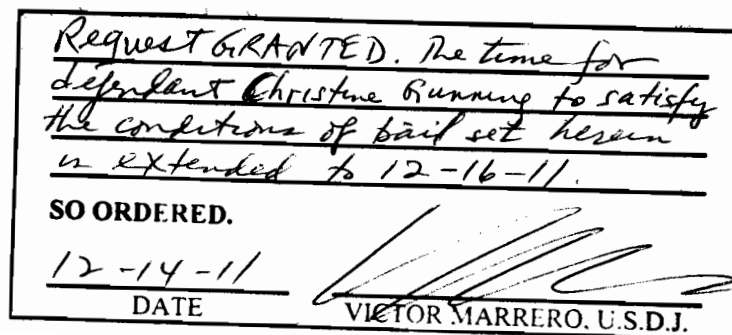 Request GRANTED. The time for
defendant Christine Gunning to satisfy
the conditions of bail set herein
is extended to 12-16-11.
SO ORDERED.
12-14-11
DATE
VICTOR MARRERO, U.S.D.J.